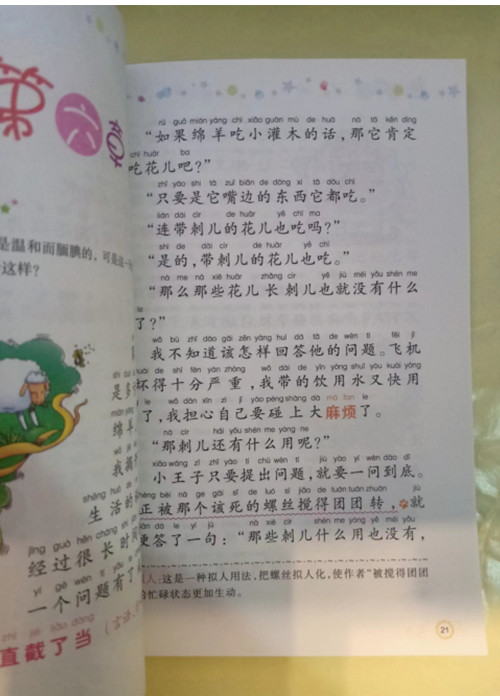 第
六
章
是温和而腼腆的，可是这
这样？
是多
绵羊
我搞
生活的
经过很长时间
一个问题有了
直截了当
rú guǒ mián yáng chī xiǎo guàn mù de huà nà tā kěn dìng
“如果绵羊吃小灌木的话，那它肯定
chī huār ba
吃花儿吧？”
zhǐ yào shì tā zuǐ biān de dōng xi tā dōu chī
“只要是它嘴边的东西它都吃。”
lián dài cìr de huār yě chī ma
“连带刺儿的花儿也吃吗？”
shì de dài cìr de huār yě chī
“是的，带刺儿的花儿也吃。”
nà me nà xiē huār zhǎng cìr yě jiù méi yǒu shén me
“那么那些花儿长刺儿也就没有什么
了？”
wǒ bù zhī dào gāi zěn yàng huí dá tā de wèn tí fēi jī
我不知道该怎样回答他的问题。飞机
huài de shí fēn yán zhòng wǒ dài de yǐn yòng shuǐ yòu kuài yòng
坏得十分严重，我带的饮用水又快用
le wǒ dān xīn zì jǐ yào pèng shàng dà má fan le
了，我担心自己要碰上大麻烦了。
nà cìr hái yǒu shén me yòng ne
“那刺儿还有什么用呢？”
xiǎo wáng zǐ zhǐ yào tí chū wèn tí jiù yào yí wèn dào dǐ
小王子只要提出问题，就要一问到底。
zhèng bèi nà ge gāi sǐ de luó sī jiǎo de tuán tuán zhuàn jiù
正被那个该死的螺丝搅得团团转，就
biàn dá le yí jù nà xiē cìr shén me yòng yě méi yǒu
便答了一句：“那些刺儿什么用也没有，
拟人：这是一种拟人用法，把螺丝拟人化，使作者“被搅得团团
的忙碌状态更加生动。
21